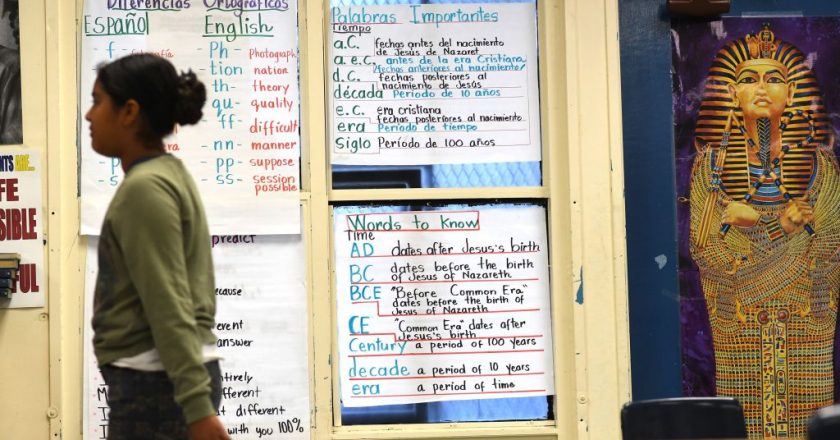 Diferencias Ortográficas
Español
English
f
Ph- Photograph
tion nation
th- theory
qu- quality
ff difficult
-nn- manner
-pp- suppose
-ss- session
possible
Palabras Importantes
Tiempo
a.C. fechas antes del nacimiento
de Jesús de Nazaret
a.e.C. antes de la era Cristiana
(fechas anteriores al nacimiento)
d.C. fechas posteriores al
nacimiento de Jesús
década Período de 10 años
e.C. era cristiana
fechas posteriores al nacimiento
era Período de tiempo
siglo Período de 100 años
Words to Know
Time
AD dates after Jesus's birth
BC dates before the birth
of Jesus of Nazareth
BCE "Before Common Era"
dates before the birth of
Jesus of Nazareth
CE "Common Era" dates after
Jesus's birth
Century a period of 100 years
decade a period of 10 years
era a period of time
predict
answer
different
with you 100%